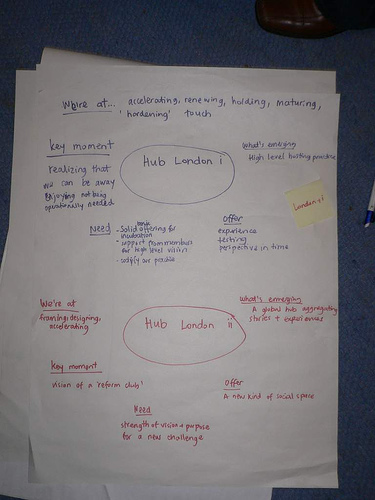 We're at... accelerating, renewing, holding, maturing,
'hardening' touch
key moment
realizing that
we can be away
Enjoying not being
operationally needed
Hub London i
What's emerging
High level hosting practice
London i
Need
- Solid offering for
incubation
- support from members
for high level vision
- codify our practice
Offer
experience
testing
perspective in time
We're at
framing, designing,
accelerating
Hub London ii
What's emerging
A global hub aggregating
stories + experiences
Key moment
vision of a 'reform club'
Offer
A new kind of social space
Need
strength of vision + purpose
for a new challenge